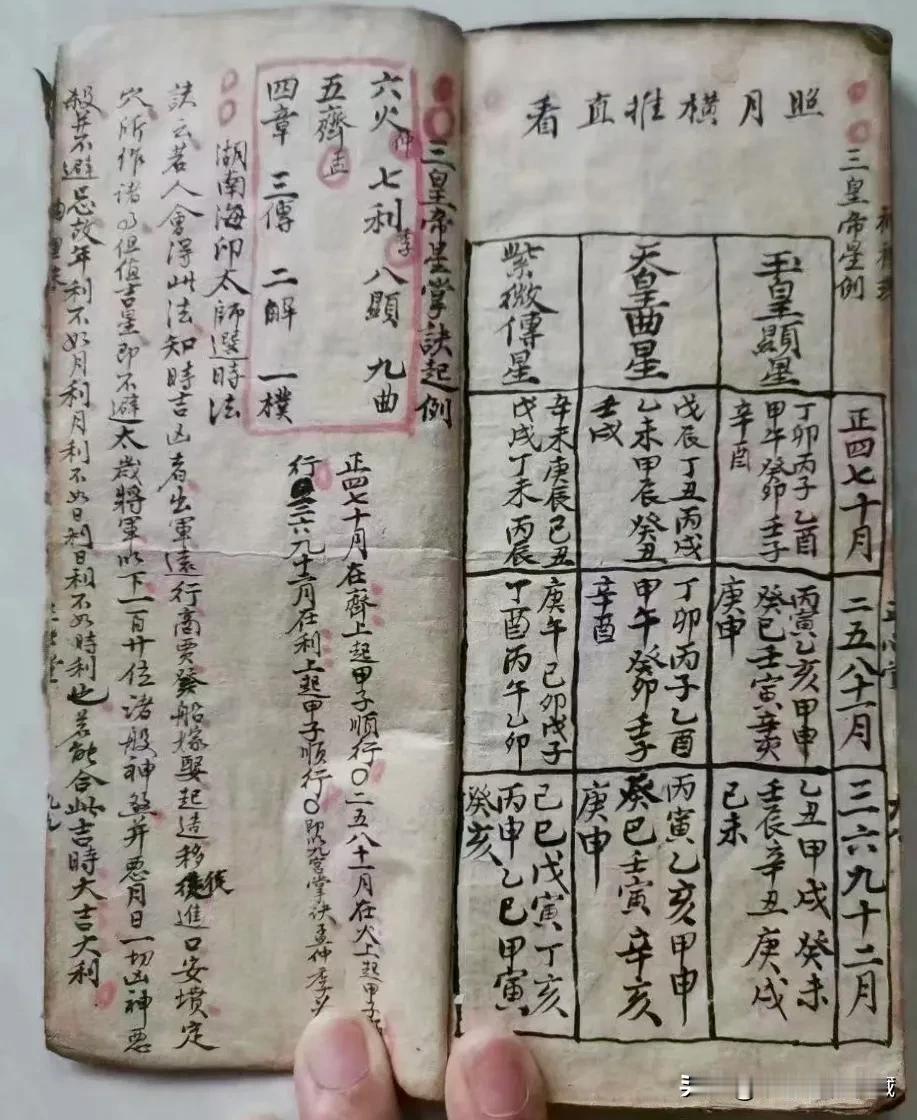 三皇帝星例
照月橫推直看
正四七十月
二五八十一月
三六九十二月
玉皇顯星
丁卯丙子乙酉
甲午癸卯壬子
辛酉
丙寅乙亥甲申
癸巳壬寅辛亥
庚申
乙丑甲戌癸未
壬辰辛丑庚戌
己未
天皇曲星
戊辰丁丑丙戌
乙未甲辰癸丑
壬戌
丁卯丙子乙酉
甲午癸卯壬子
辛酉
丙寅乙亥甲申
癸巳壬寅辛亥
庚申
紫微傳星
辛未庚辰己丑
戊戌丁未丙辰
庚午己卯戊子
丁酉丙午乙卯
己巳戊寅丁亥
丙申乙巳甲寅
癸亥
三皇帝星掌訣起例
六火仲七利季八顯 九曲
五齊孟
四章 三傳 二解 一樸
正四七十月在齊上起甲子順行〇二五八十一月在火上起甲子
行三六九十二月在利上起甲子順行〇即以九宮掌訣孟仲季
湖南海印太師選時法
訣云若人會得此法知時吉凶者出軍遠行商賈發船嫁娶起造移後進口安墳定
穴所作諸事但值吉星即不避太歲將軍以下一百廿位諸般神煞并惡月日一切凶神惡
殺并不避忌故年利不如月利月利不如日利日利不如時利也若能合此吉時大吉大利